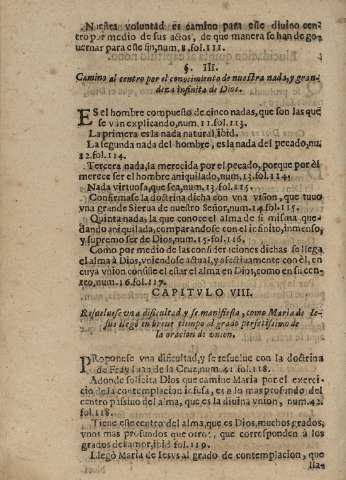 Nuestra voluntad es camino para este divino cen-
tro por medio de sus actos, de que manera se han de go-
vernar para este fin, num. 8. fol. 111.
§. III.
Camino al centro por el conocimiento de nuestra nada, y gran-
deza infinita de Dios.
ES el hombre compuesto de cinco nadas, que son las que
se van explicando, num. 11. fol. 113.
La primera es la nada natural, ibid.
La segunda nada del hombre, es la nada del pecado, nu.
12. fol. 114.
Tercera nada, la merecida por el pecado, porque por èl
merece ser el hombre aniquilado, num. 13. fol. 114.
Nada virtuosa, que sea, num. 13. fol. 115.
Confirmase la doctrina dicha con vna vision, que tuvo
vna grande Sierva de nuestro Señor, num. 14. fol. 115.
Quinta nada, la que conoce el alma de si misma que-
dando aniquilada, comparandose con el infinito, inmenso,
y supremo ser de Dios, num. 15. fol. 116.
Como por medio de las consideraciones dichas se llega
el alma à Dios, vniendose actual, y afectivamente con èl, en
cuya vnion consiste el estar el alma en Dios, como en su cen-
tro, num. 16. fol. 117.
CAPITVLO VIII.
Resuelvese vna dificultad, y se manifiesta, como Maria de Je-
sus llegò en breve tiempo al grado perfectissimo de
la oracion de vnion.
PRoponese vna dificultad, y se resuelve con la doctrina
de Fray Juan de la Cruz, num. 41. fol. 118.
Adonde solicita Dios que camine Maria por el exerci-
cio de la contemplacion infusa, es a lo mas profundo del
centro passivo del alma, que es la divina vnion, num. 42.
fol. 118.
Tiene este centro del alma, que es Dios, muchos grados,
vnos mas profundos que otros, que corresponden à los
grados del amor, ibid. fol. 119.
Llegò Maria de Jesvs al grado de contemplacion, que
lla-